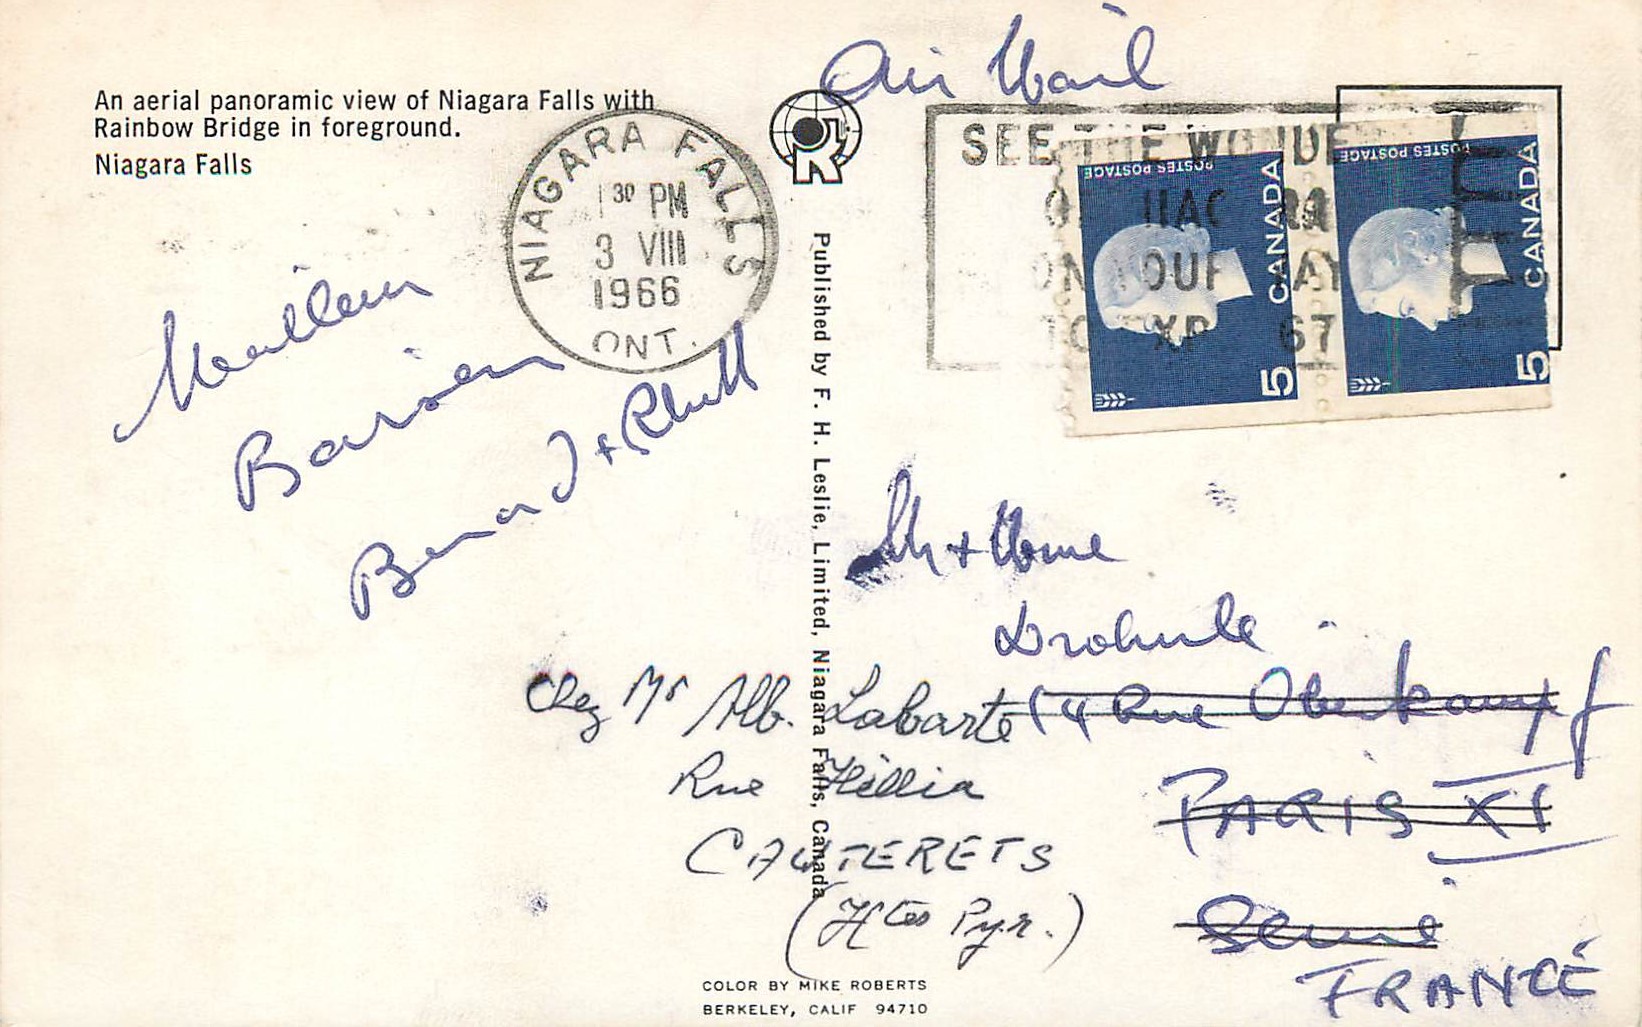 Air Mail
An aerial panoramic view of Niagara Falls with
Rainbow Bridge in foreground.
Niagara Falls
NIAGARA FALLS
1 30 PM
3 VIII
1966
ONT.
SEE THE WONDE
ON YOUR WAY
TO EXPO 67
POSTES POSTAGE
CANADA
5
POSTES POSTAGE
CANADA
5
Meilleurs
Baisers
Bernard +
Published by F. H. Leslie, Limited, Niagara Falls, Canada
Mr + Mme
14 Rue Oberkampf
PARIS XI
Seine
FRANCE
Chez Mr Alb. Labarte
Rue Hillia
CAUTERETS
(Htes Pyr.)
COLOR BY MIKE ROBERTS
BERKELEY, CALIF 94710